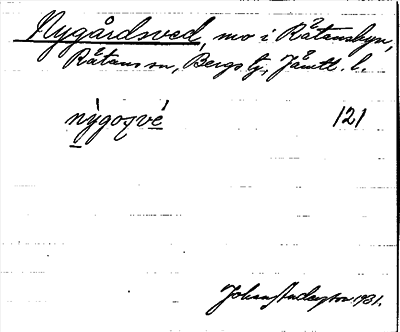 Nygårdsved, mo i Råtansbyn,
Råtans sn, Bergs tg, Jämtl. l.
nỳgoʐvé 121
1931.